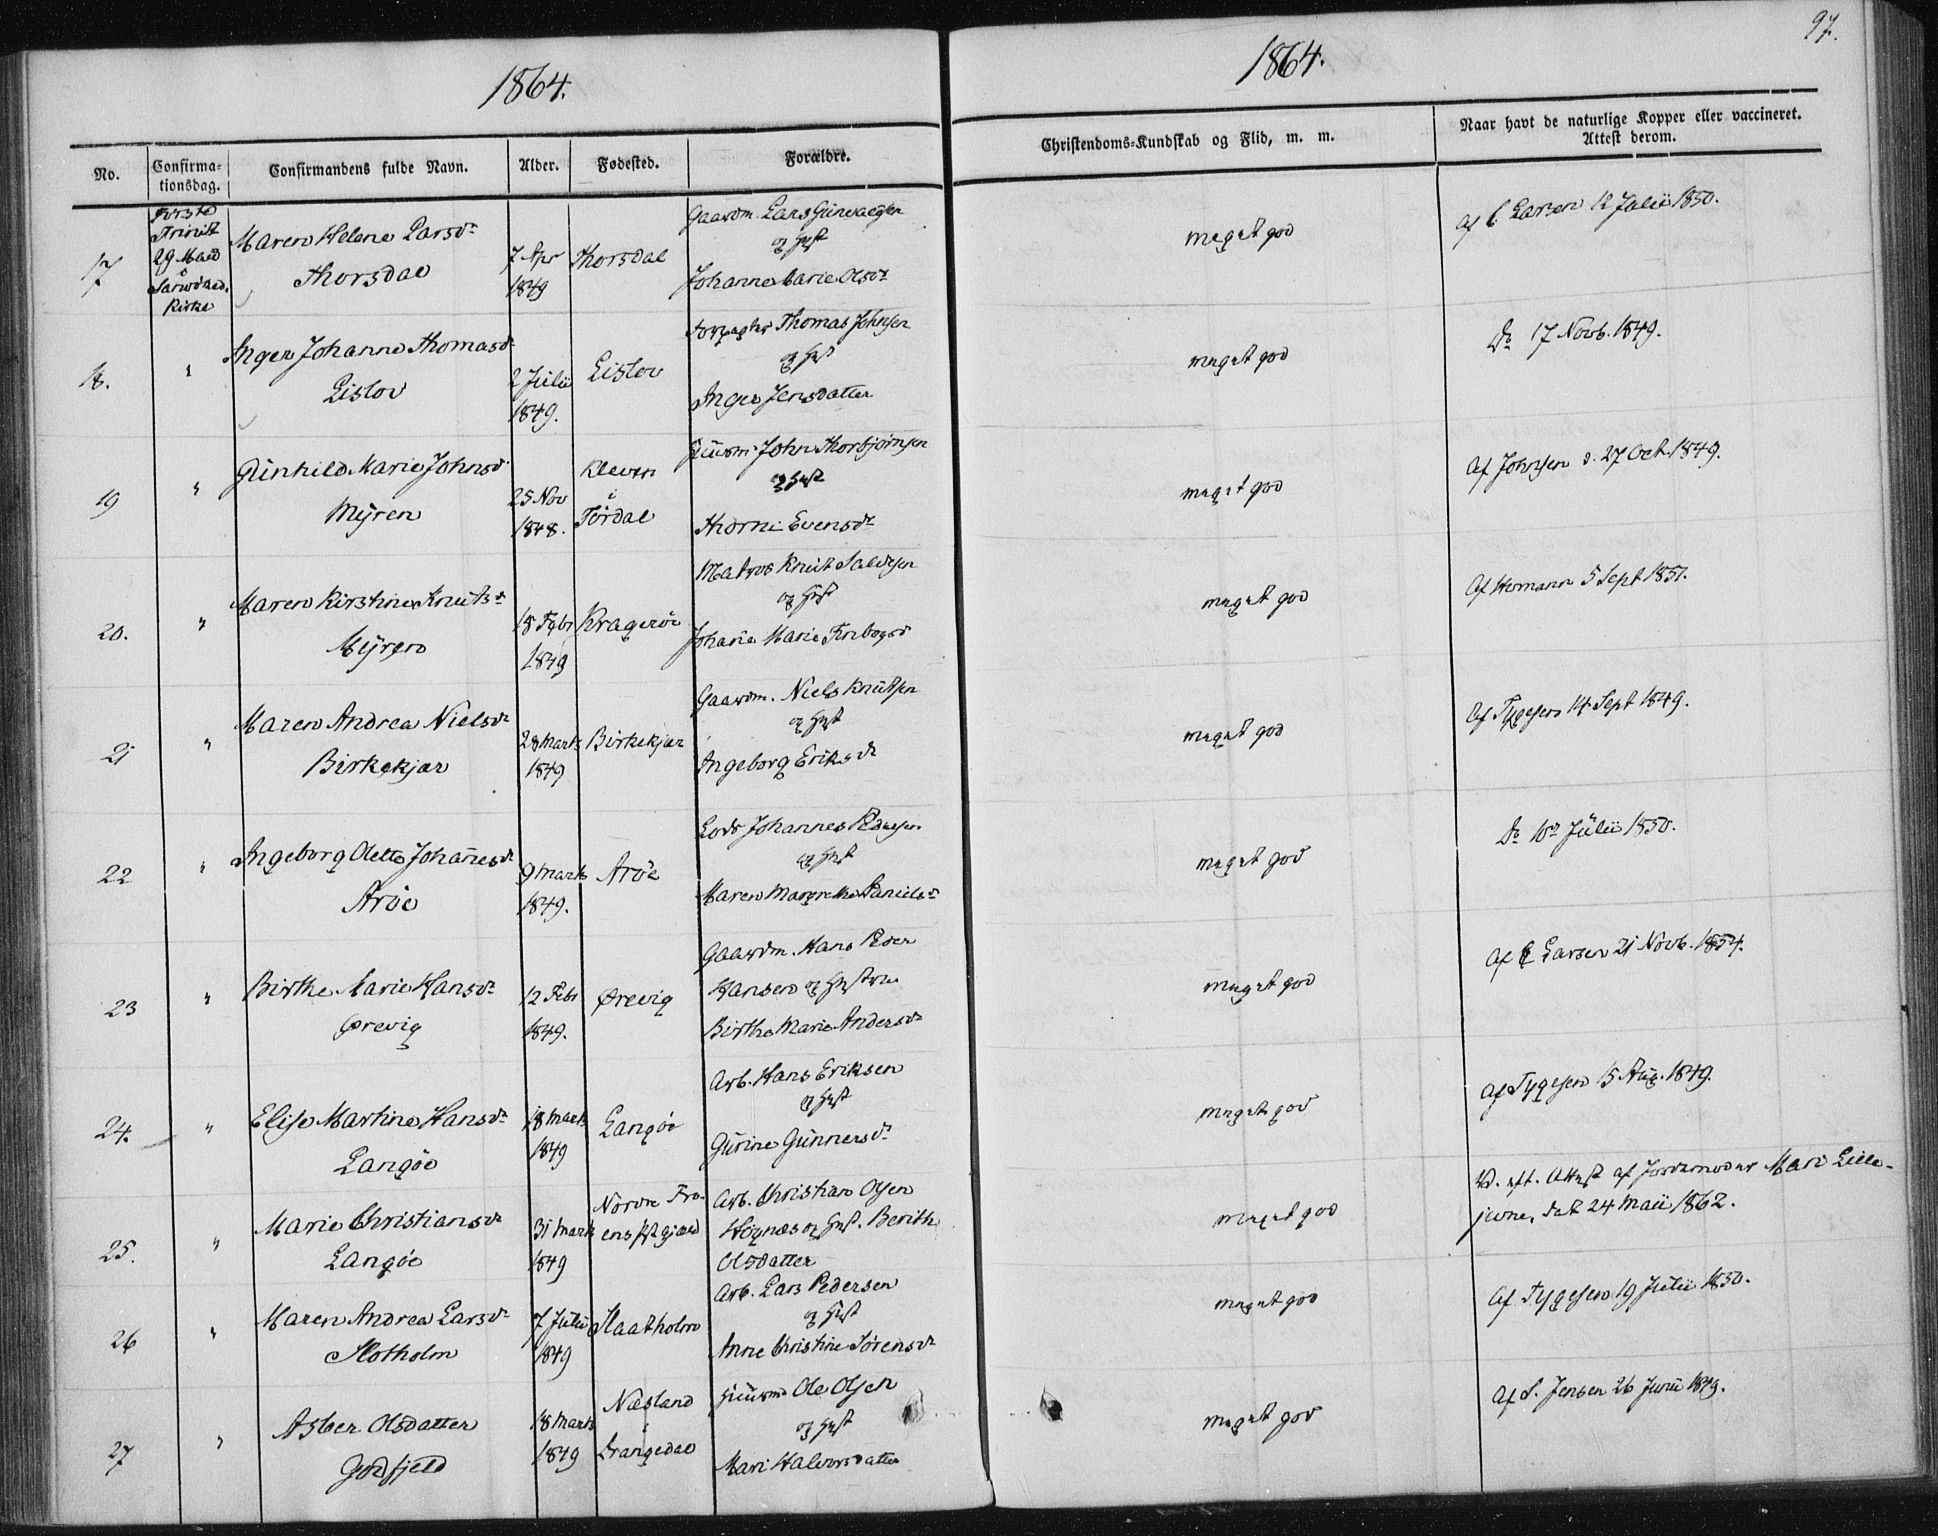 1864.
1864.
97.
No.
Confirma-
tionsdag.
Confirmandens fulde Navn.
Alder.
Fødested.
Forældre.
Christendoms-Kundskab og Flid, m. m.
Naar havt de naturlige Kopper eller vaccineret.
Attest derom.
17
Første
Trinit
29 Maii
i
Kirke
Maren Helene Larsdr
Thorsdal
7 Apr
1849
Thorsdal
Gaardm. Lars Gunvaldsen
og Hust
Johanne Marie Olsdr
meget god
af C. Larsen 12 Julii 1850.
18.
"
Inger Johanne Thomasdr
Lislov
2 Julii
1849.
Lislov
Forpagter Thomas Johnsen
og Hust
Inger Jensdatter
meget god
Do 17 Novb. 1849.
19
"
Gunhild Marie Johnsdr
Myren
25 Nov
1848.
Kleven
i
Tørdal
Huusm. John Thorbjørnsen
og Hust
Thorni Evensdr
meget god
af Johnsen d. 27 Oct 1849.
20.
"
Maren Kirstine Knutsdr
Myren
18 Febr
1849
Kragerøe
Matros Knut Salvesen
og Hust
Johane Marie
meget god
af Homann 5 Sept 1851.
21
"
Maren Andrea Nielsdr
Birkekjær
28 Marts
1849
Birkekjær
Gaardm. Niels Knutsen
og Hust
Ingeborg Eriksdr
meget god
af Tygesen 14 Sept 1849.
22
"
Ingeborg Olette Johanesdr
Arøe
9 Marts
1849.
Arøe
Lods Johannes Pedersen
og Hust
Maren Margrethe Danielsdr
meget god
Do 10de Julii 1850.
23
"
Birthe Marie Hansdr
Ørevig
12 Febr
1849.
Ørevig
Gaardm. Hans Peder
Hansen og Hustrue
Birthe Marie Andersdr
meget god
af C Larsen 21 Novb. 1854.
24.
"
Elise Martine Hansdr
Langøe
18 Marts
1849
Langøe
Arb. Hans Eriksen
og Hust
Gurine Gunnersdr
meget god
af Tygesen 15 Aug. 1849.
25.
"
Marie Christiansdr
Langøe
31 Marts
1849
Arb. Christian Olsen
Høgnæs og Hust. Berith
Olsdatter
meget god
Vd. eft. Attest af Jordemoder Mari Lille-
jevne, dat 24 Maii 1862.
26
"
Maren Andrea Larsdr
Slotholm
7 Julii
1849
Slaatholm
Arb. Lars Pedersen
og Hust
Anne Christine Sørensdr
meget god
af Tygesen 19 Julii 1850.
27
"
Asber Olsdatter
Godfjeld
18 Marts
1849
Næsland
i
Drangedal
Huusm Ole Olsen
og Hust
Mari Halvorsdatter
meget god
af S. Jensen 26 Junii 1849.